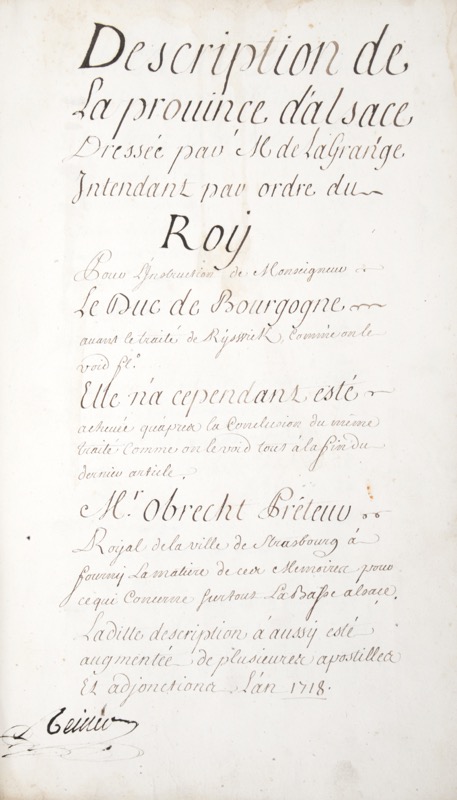 Description de
La prouince d'alsace
Dressée par M. de LaGrange
Intendant par ordre du
Roÿ
Pour L'Instruction de Monseigneur
Le Duc de Bourgogne
auant le traité de Rÿswick, comme on le
void fº.
Elle n'a cependant esté
acheué qu'apres la Conclusion du même
traité comme on le void tout à la fin du
dernier article.
Mr. Obrecht Préteur
Roÿal de la ville de Strasbourg à
fournÿ La matiere de ces Memoires pour
ce qui Concerne surtout La Basse alsace.
Laditte description à aussÿ esté
augmentée de plusieures apostilles
Et adjonctions L'an 1718.